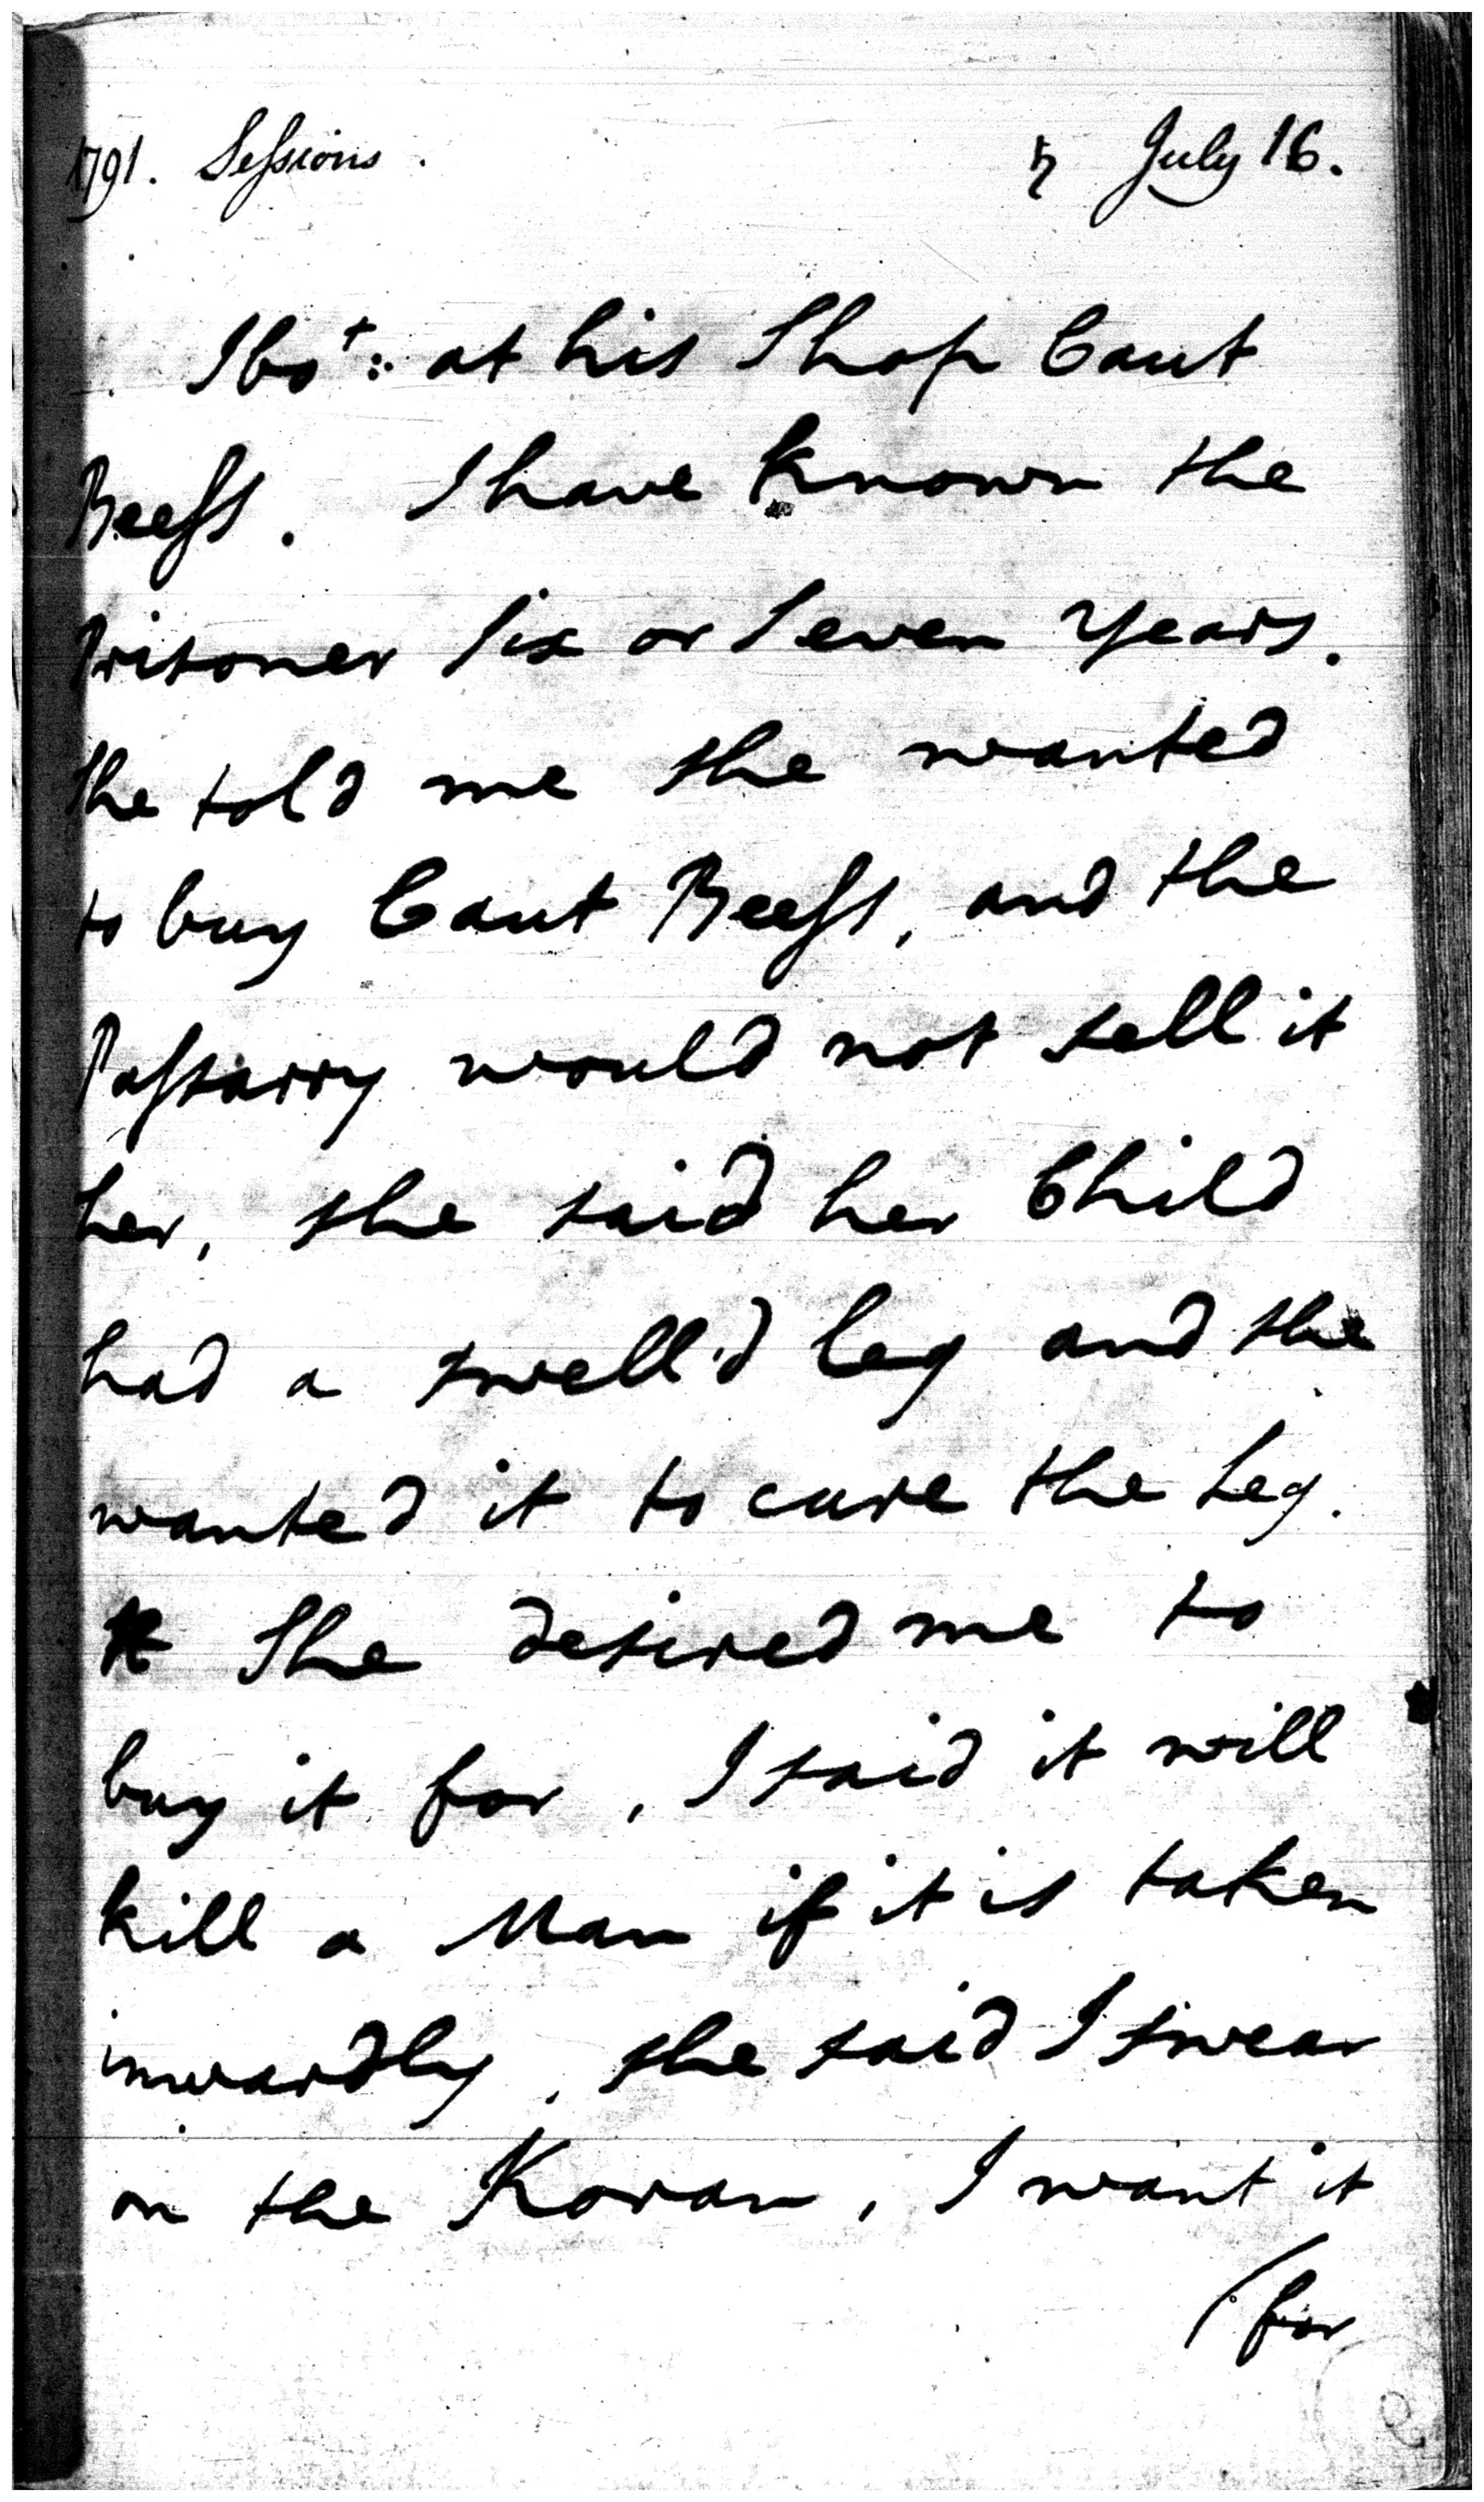 1791. Sessions. ♄ July 16.
I bot. at his Shop Caut
Beess. I have known the
Prisoner Six or Seven Years.
She told me she wanted
to buy Caut Beess, and the
Passarry would not sell it
her, she said her Child
had a swell'd leg and she
wanted it to cure the Leg.
She desired me to
buy it for, I said it will
kill a Man if it is taken
inwardly, she said I swear
on the Koran, I want it
(for